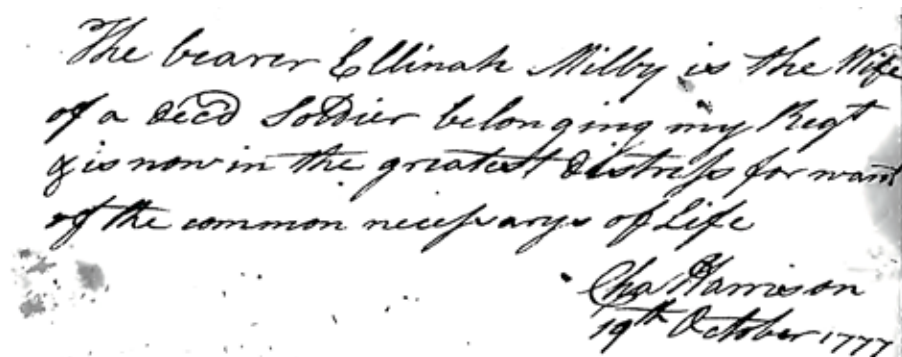 The bearer Ellinah Milby is the Wife
of a decd Soldier belonging my Regt
& is now in the greatest distress for want
of the common necessarys of Life
Cha Harrison
19th October 1777